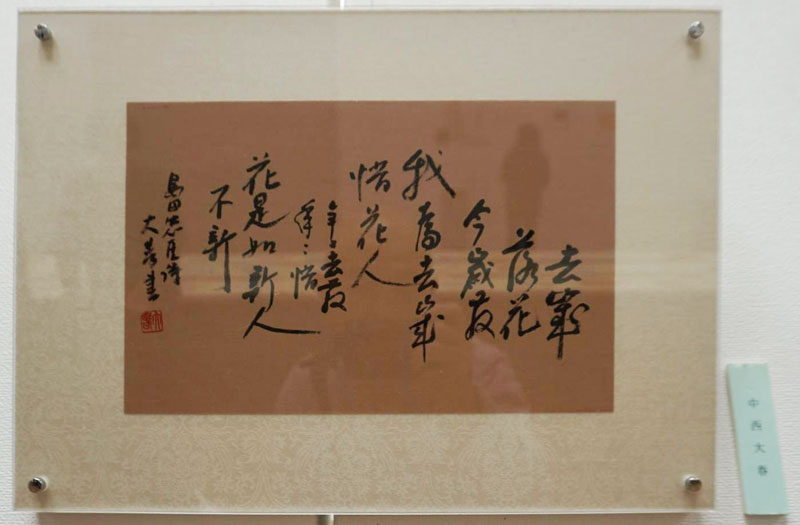 去歳
落花
今歳發
我為去歳
惜花人
年々花發
年々惜
花是如新人
不新
島田忠臣詩
大春書
中西大春